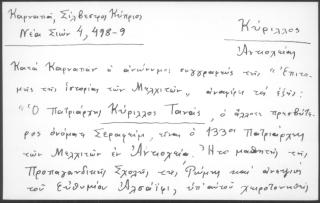 Καρναπᾶ, Σίλβεστρος Κύπριος
Νέα Σιών 4, 498-9
Κύριλλος
Ἀντιοχείας
Κατὰ Καρναπᾶν ὁ ἀνώνυμος συγγραφεὺς τῆς "Ἐπιτο-
μῆς τῆς ἱστορίας τῶν Μελχιτῶν" ἀναφέρει τὰ ἑξῆς:
"Ὁ Πατριάρχης Κύριλλος Τανᾶς, ὁ ἄλλοτε πρεσβύτε-
ρος ὀνόματι Σεραφείμ, εἶναι ὁ 133ος Πατριάρχης
τῶν Μελχιτῶν ἐν Ἀντιοχείᾳ. Ἦτο μαθητὴς τῆς
Προπαγανδικῆς Σχολῆς τῆς Ρώμης καὶ ἀνεψιὸς
τοῦ Εὐθυμίου Ἀλσαΐφι, ὑπ' αὐτοῦ χειροτονηθεὶς